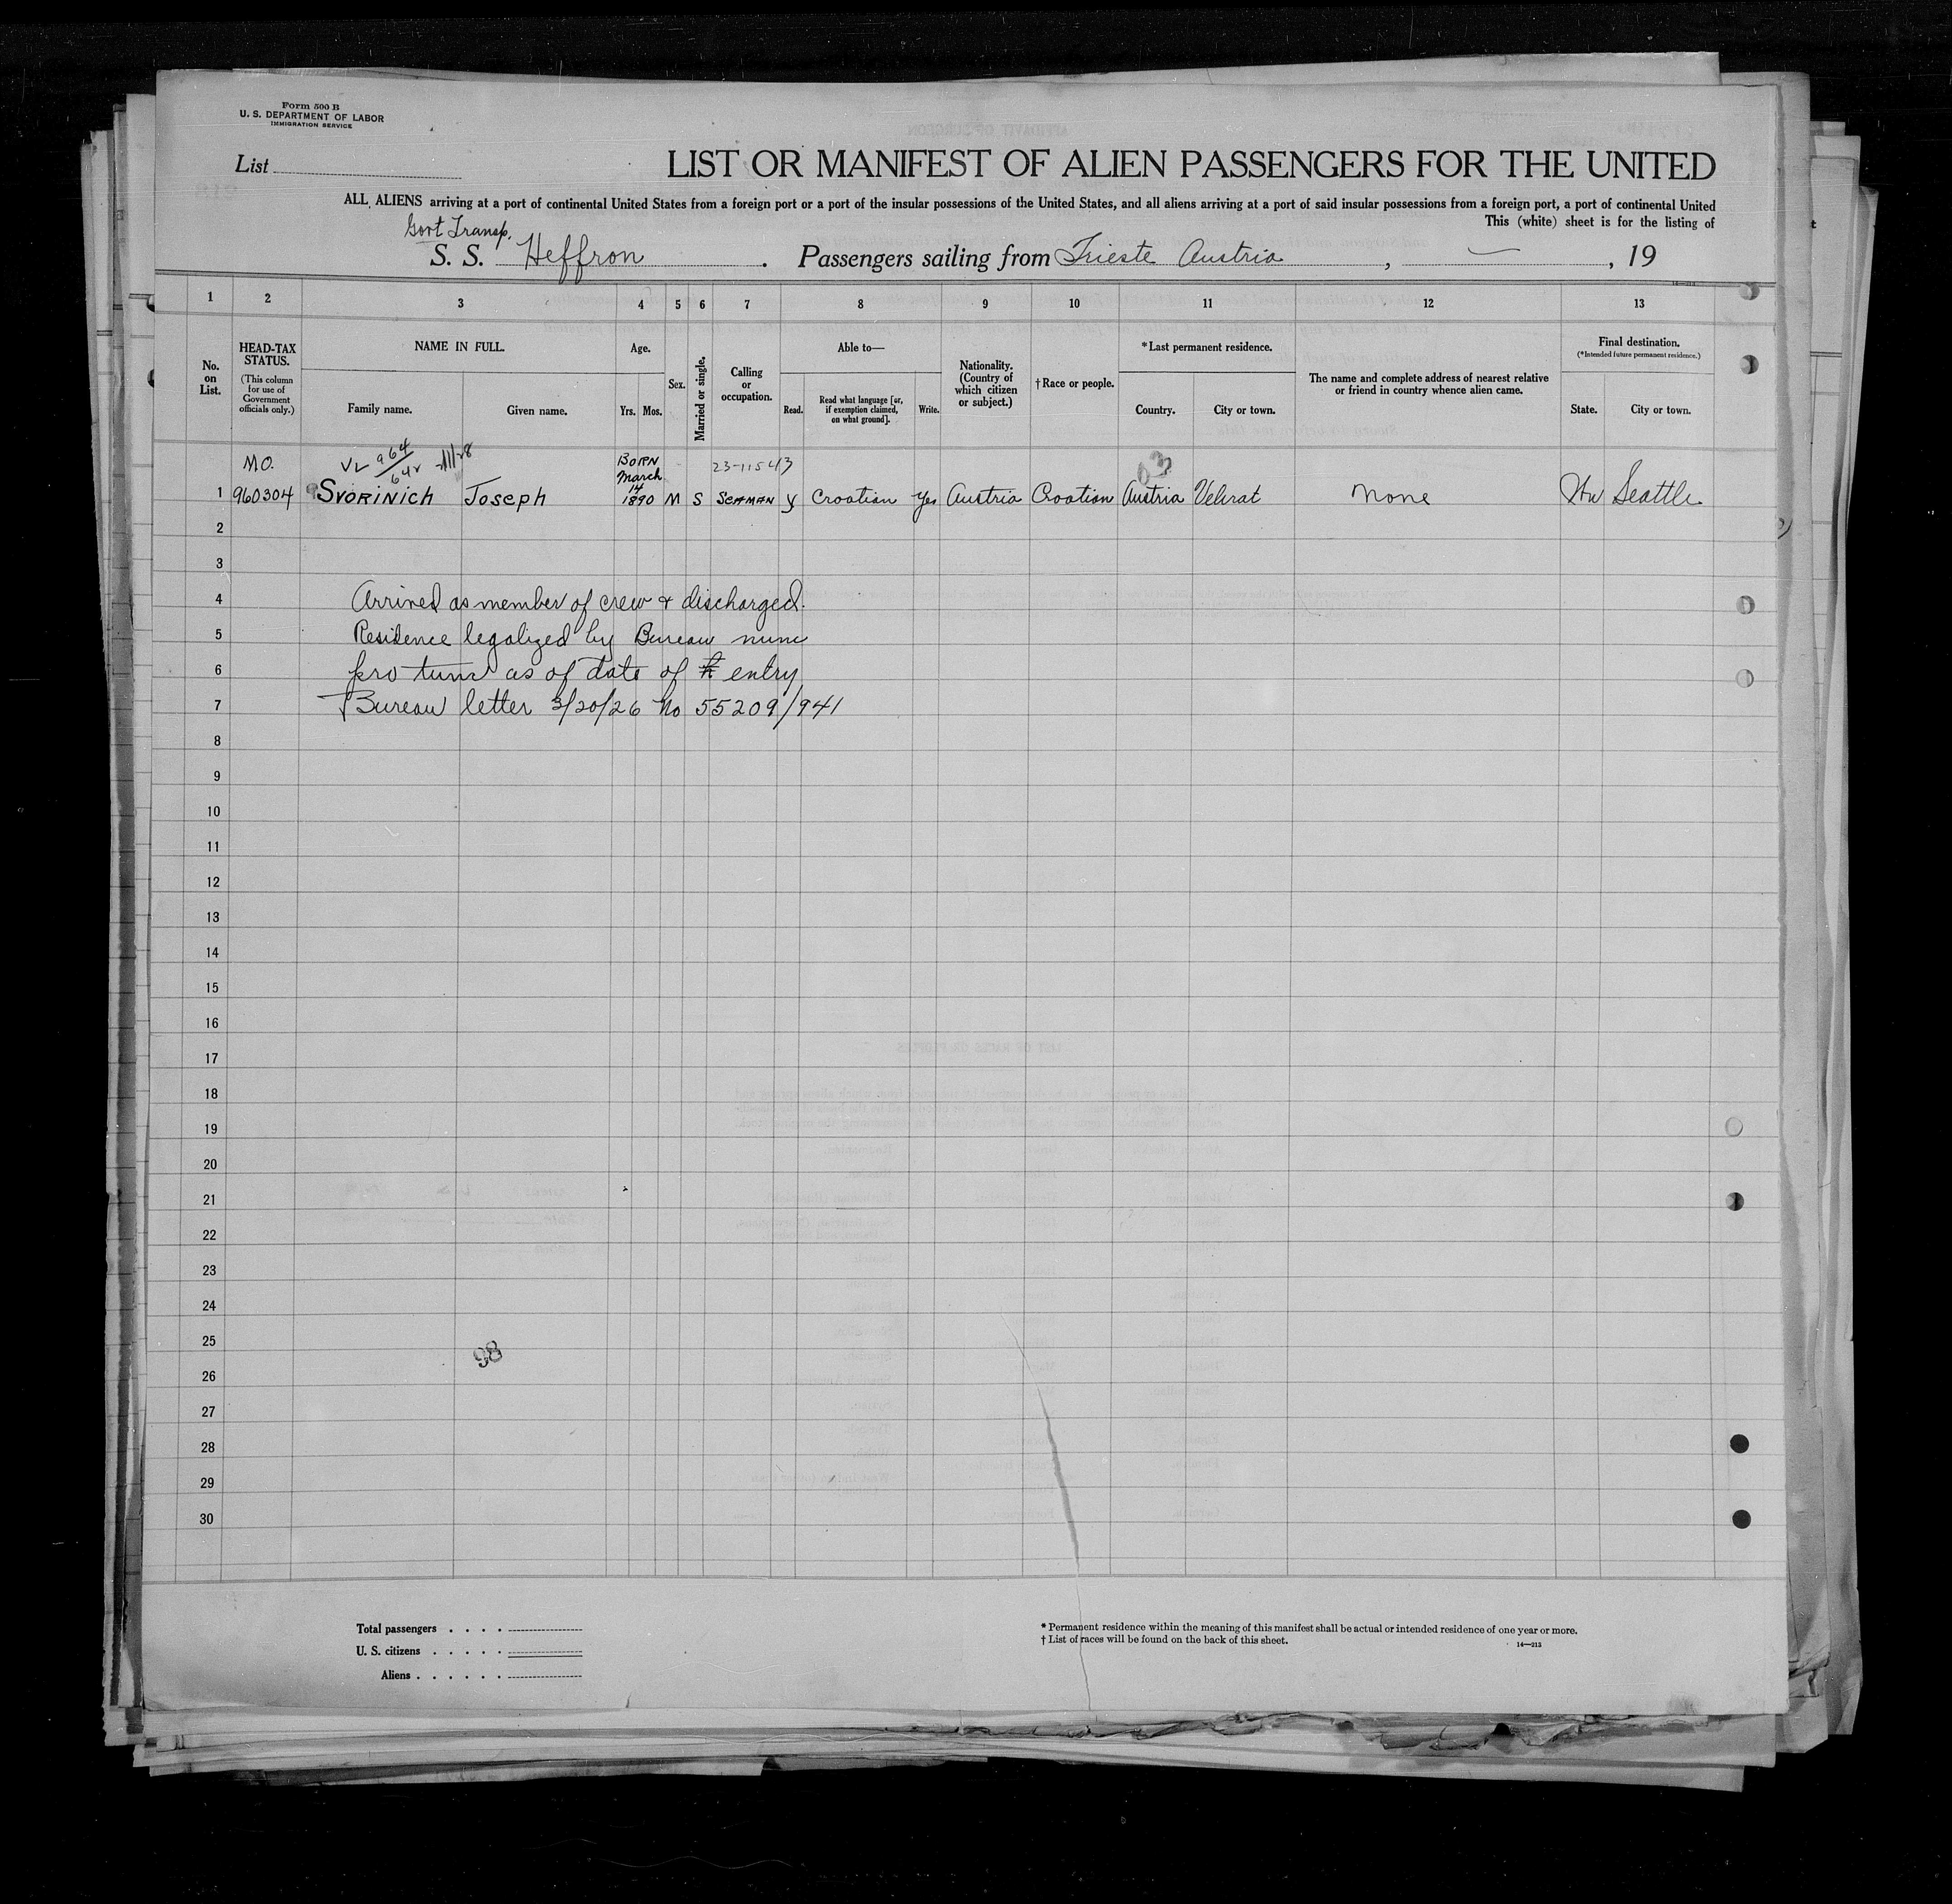 Form 500 B
U. S. DEPARTMENT OF LABOR
IMMIGRATION SERVICE
List
LIST OR MANIFEST OF ALIEN PASSENGERS FOR THE UNITED
ALL ALIENS arriving at a port of continental United States from a foreign port or a port of the insular possessions of the United States, and all aliens arriving at a port of said insular possessions from a foreign port, a port of continental United
This (white) sheet is for the listing of
Govt Transp.
S. S. Heffron . Passengers sailing from Trieste Austria , — , 19
1 2 3 4 5 6 7 8 9 10 11 12 13
No. on List.
HEAD-TAX STATUS.
(This column for use of Government officials only.)
NAME IN FULL.
Family name. Given name.
Age.
Yrs. Mos.
Sex.
Married or single.
Calling or occupation.
Able to—
Read. Read what language [or, if exemption claimed, on what ground]. Write.
Nationality. (Country of which citizen or subject.)
† Race or people.
* Last permanent residence.
Country. City or town.
The name and complete address of nearest relative or friend in country whence alien came.
Final destination.
(*Intended future permanent residence.)
State. City or town.
MO. VL 964/642 BORN March 14 23-11543 03
1 960304 Svorinich Joseph 1890 M S SEAMAN y Croatian Yes Austria Croatian Austria Velirat None Wn Seattle
2
3
4 Arrived as member of crew & discharged.
5 Residence legalized by Bureau nunc
6 pro tunc as of date of entry
7 Bureau letter 3/20/26 No 55209/941
8
9
10
11
12
13
14
15
16
17
18
19
20
21
22
23
24
25
98
26
27
28
29
30
Total passengers . . . .
U. S. citizens . . . . .
Aliens . . . . . .
* Permanent residence within the meaning of this manifest shall be actual or intended residence of one year or more.
† List of races will be found on the back of this sheet.
14—213